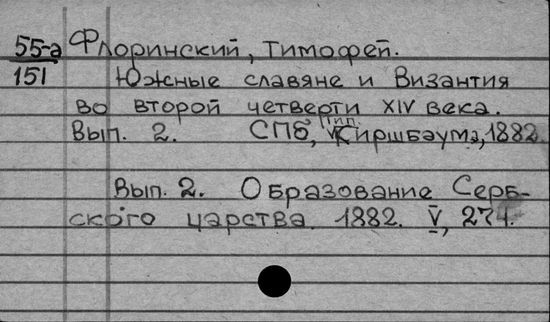 55-а Флоринский, Тимофей.
151 Южные славяне и Византия
во второй четверти XIV века.
Вып. 2. СПб, тип. Киршбаума, 1882.
Вып. 2. Образование Серб-
ского царства. 1882. V, 274.